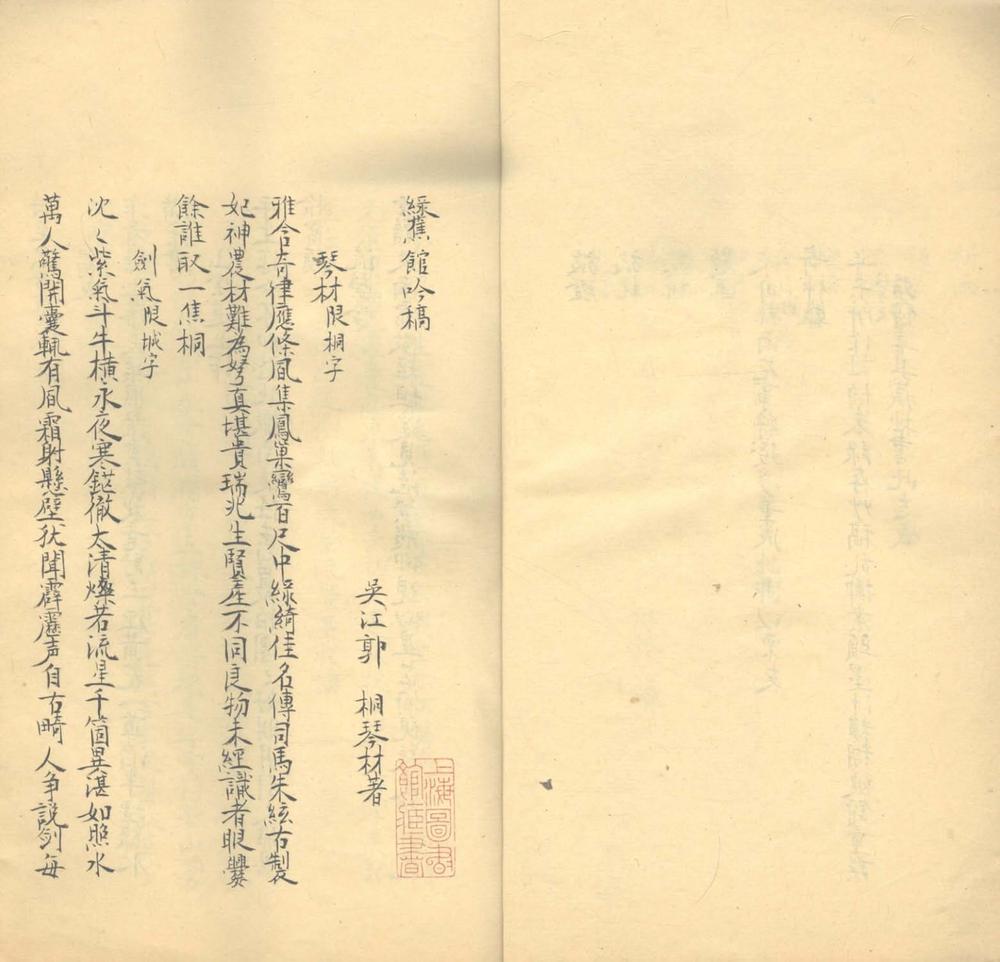 綠蕉館吟稿
吳江郭　桐琴材著
琴材限桐字
雅合奇律應條風集鳳巢鸞百尺中綠綺佳名傳司馬朱絃古製
妃神農材難為弩真堪貴瑞兆生賢產不同良物未經識者眼爨
餘誰取一焦桐
劍氣限城字
沈〻紫氣斗牛橫永夜寒鋩徹太清燦若流星千箇異湛如照水
萬人驚開囊輒有風霜射懸壁犹聞霹靂声自古畸人争説劍每
上海圖書館藏書